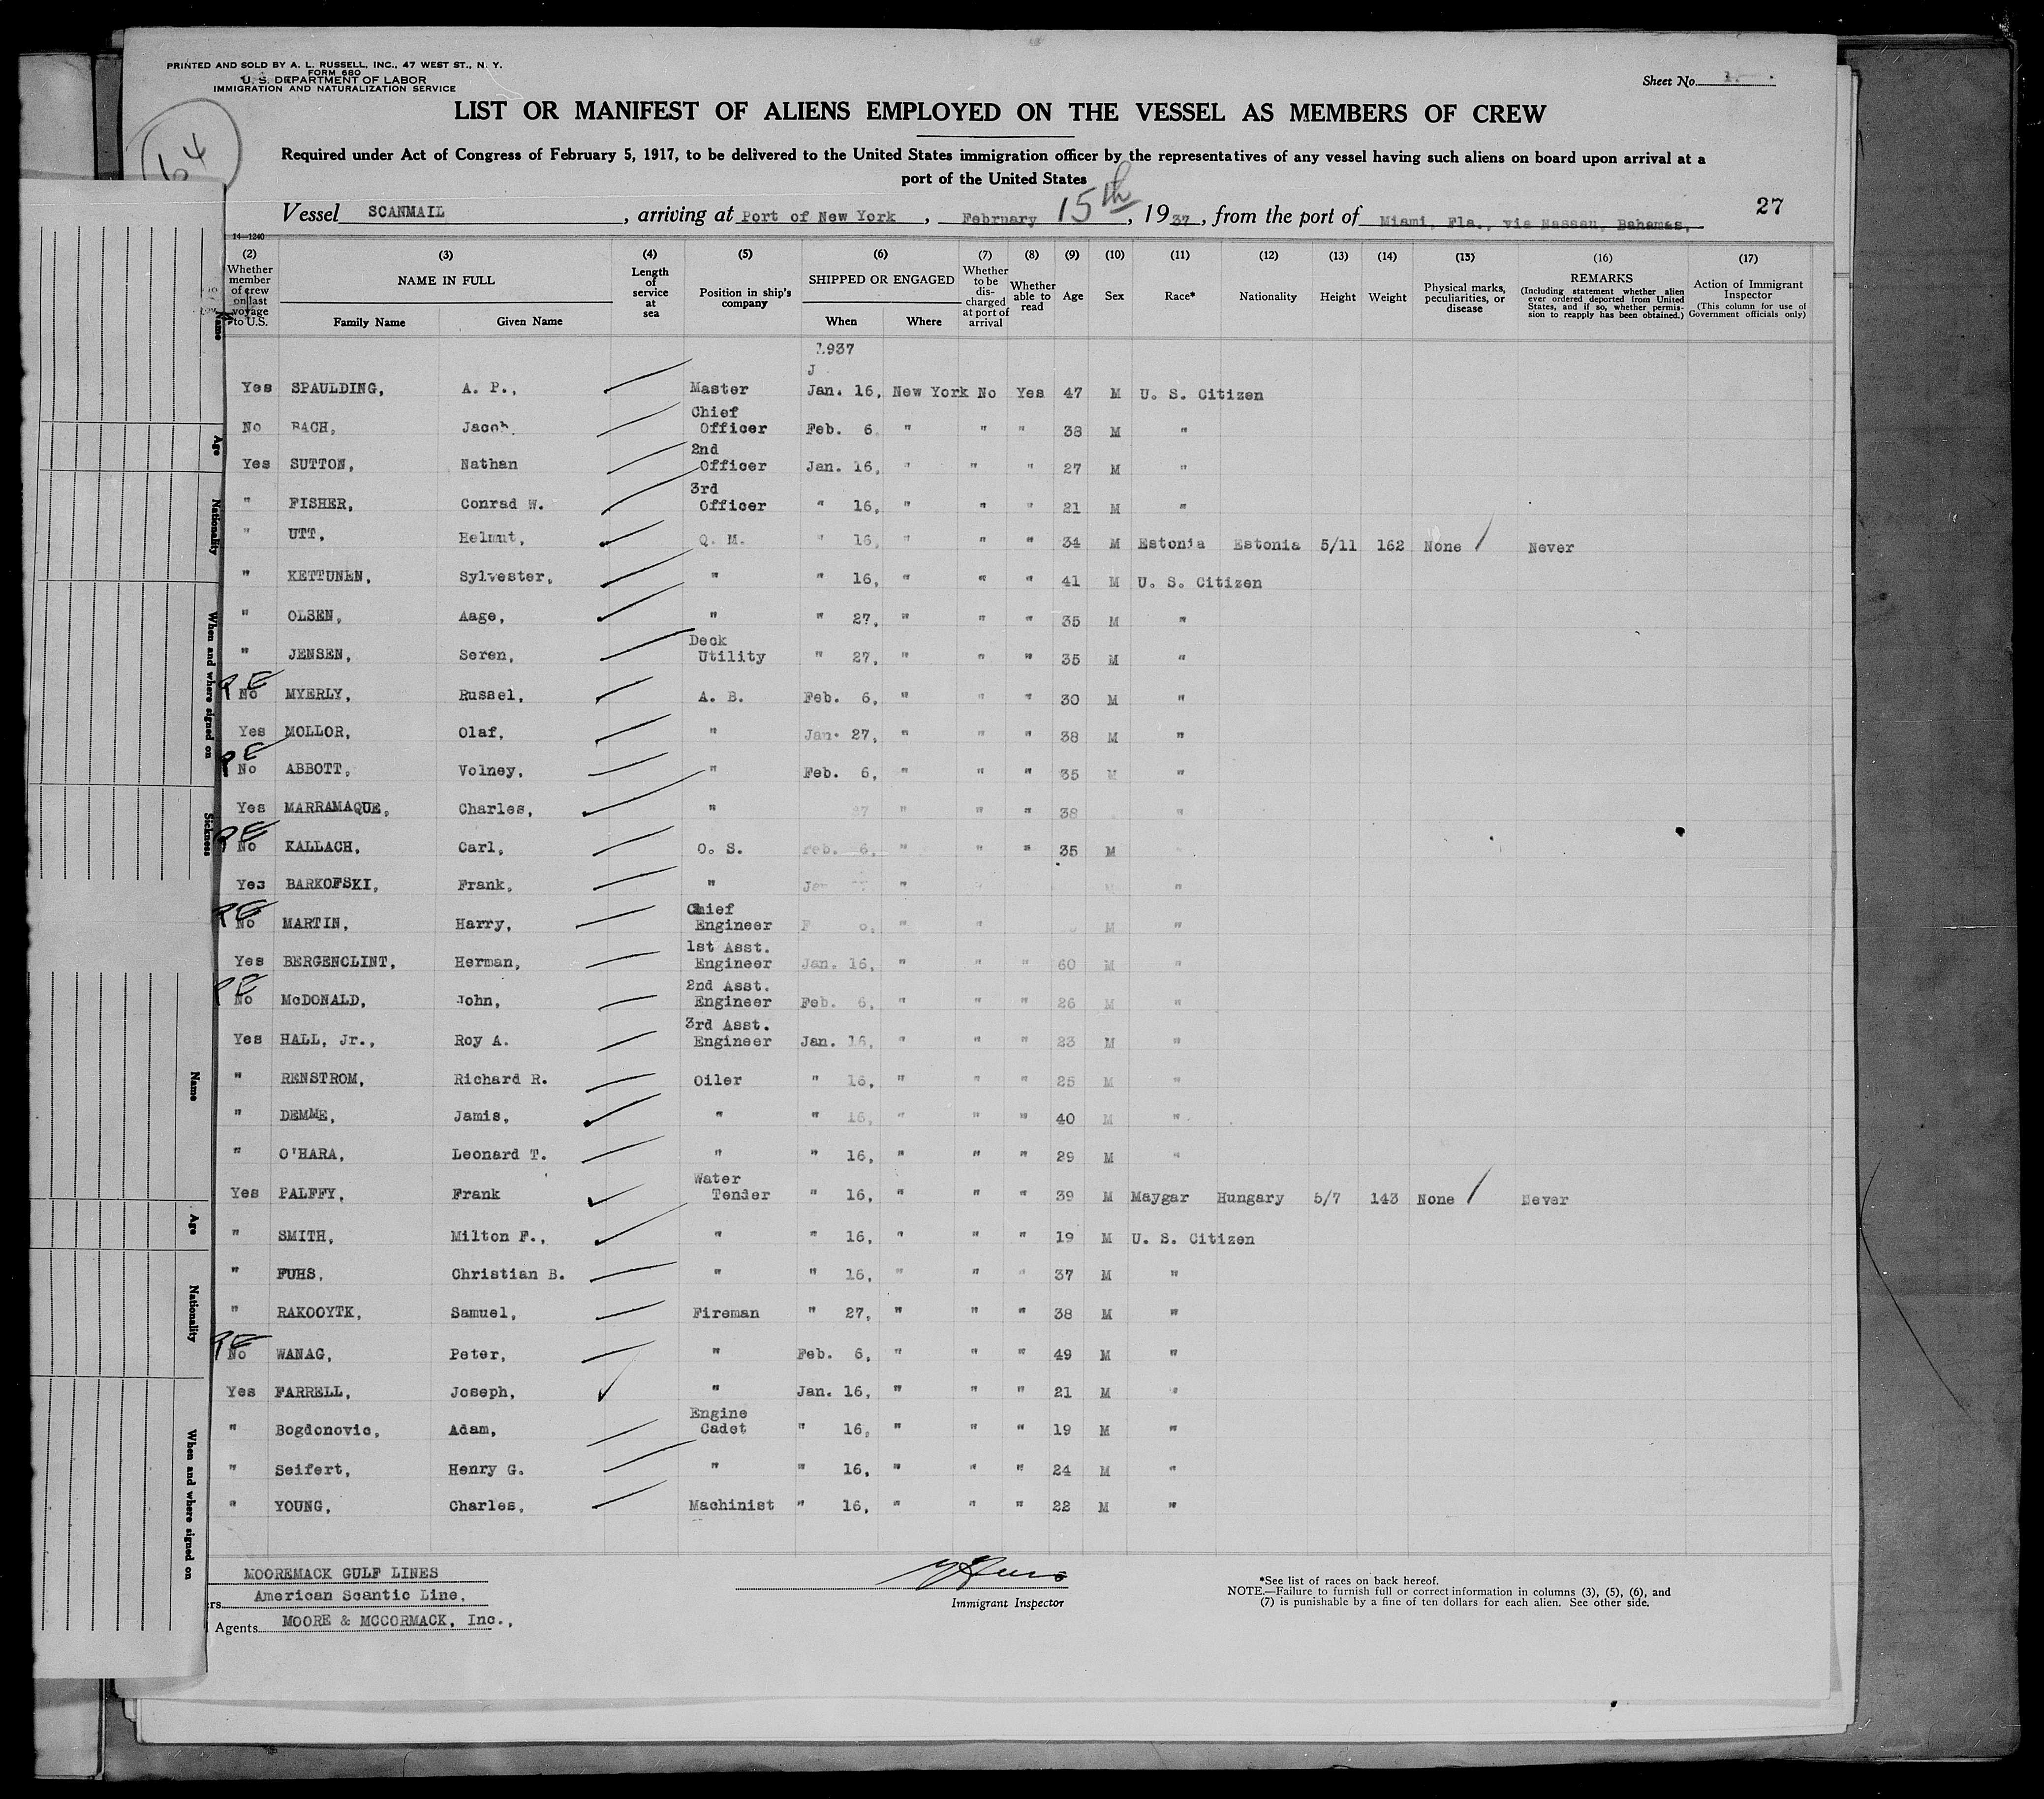 PRINTED AND SOLD BY A. L. RUSSELL, INC., 47 WEST ST., N. Y.
FORM 680
U. S. DEPARTMENT OF LABOR
IMMIGRATION AND NATURALIZATION SERVICE
Sheet No. 1.
LIST OR MANIFEST OF ALIENS EMPLOYED ON THE VESSEL AS MEMBERS OF CREW
64
Required under Act of Congress of February 5, 1917, to be delivered to the United States immigration officer by the representatives of any vessel having such aliens on board upon arrival at a
port of the United States
Vessel SCANMAIL, arriving at Port of New York, February 15th, 1937, from the port of Miami, Fla., via Nassau, Bahamas. 27
14—1240
(2) (3) (4) (5) (6) (7) (8) (9) (10) (11) (12) (13) (14) (15) (16) (17)
Whether member of crew on last voyage to U.S.
NAME IN FULL
Family Name Given Name
Length of service at sea
Position in ship's company
SHIPPED OR ENGAGED
When Where
Whether to be discharged at port of arrival
Whether able to read
Age Sex Race* Nationality Height Weight
Physical marks, peculiarities, or disease
REMARKS
(Including statement whether alien ever ordered deported from United States, and if so, whether permission to reapply has been obtained.)
Action of Immigrant Inspector
(This column for use of Government officials only)
1937
J
Yes SPAULDING, A. P., Master Jan. 16, New York No Yes 47 M U. S. Citizen
No BACH, Jacob, Chief Officer Feb. 6 " " " 38 M "
Yes SUTTON, Nathan 2nd Officer Jan. 16, " " " 27 M "
" FISHER, Conrad W. 3rd Officer " 16, " " " 21 M "
" UTT, Helmut, Q. M. " 16, " " " 34 M Estonia Estonia 5/11 162 None / Never
" KETTUNEN, Sylvester, " " 16, " " " 41 M U. S. Citizen
" OLSEN, Aage, " " 27, " " " 35 M "
" JENSEN, Seren, Deck Utility " 27, " " " 35 M "
RE No MYERLY, Russel, A. B. Feb. 6, " " " 30 M "
Yes MOLLOR, Olaf, " Jan. 27, " " " 38 M "
RE No ABBOTT, Volney, " Feb. 6, " " " 35 M "
Yes MARRAMAQUE, Charles, " 27 " " " 38 "
RE No KALLACH, Carl, O. S. Feb. 6, " " " 35 M
Yes BARKOFSKI, Frank, " " M "
RE No MARTIN, Harry, Chief Engineer " " M "
Yes BERGENCLINT, Herman, 1st Asst. Engineer Jan. 16, " " " 60 M "
RE No McDONALD, John, 2nd Asst. Engineer Feb. 6, " " " 26 M "
Yes HALL, Jr., Roy A. 3rd Asst. Engineer Jan. 16, " " " 23 M "
" RENSTROM, Richard R. Oiler " 16, " " " 25 M "
" DEMME, Jamis, " " 16, " " " 40 M "
" O'HARA, Leonard T. " " 16, " " " 29 M "
Yes PALFFY, Frank Water Tender " 16, " " " 39 M Maygar Hungary 5/7 143 None / Never
" SMITH, Milton F., " " 16, " " " 19 M U. S. Citizen
" FUHS, Christian B. " " 16, " " " 37 M "
" RAKOOYTK, Samuel, Fireman " 27, " " " 38 M "
RE No WANAG, Peter, " Feb. 6, " " " 49 M "
Yes FARRELL, Joseph, " Jan. 16, " " " 21 M "
" Bogdonovic, Adam, Engine Cadet " 16, " " " 19 M "
" Seifert, Henry G. " " 16, " " " 24 M "
" YOUNG, Charles, Machinist " 16, " " " 22 M "
MOOREMACK GULF LINES
rs American Scantic Line,
Agents MOORE & MCCORMACK, Inc.,
Immigrant Inspector
*See list of races on back hereof.
NOTE.—Failure to furnish full or correct information in columns (3), (5), (6), and
(7) is punishable by a fine of ten dollars for each alien. See other side.
Name
Age
Nationality
When and where signed on
Sickness
Name
Age
Nationality
When and where signed on